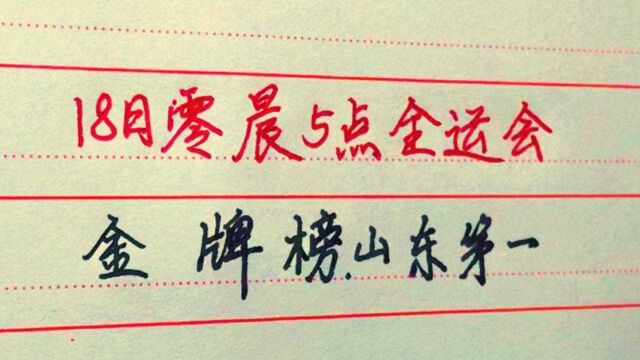 18日零晨5点全运会
金牌榜.山东第一